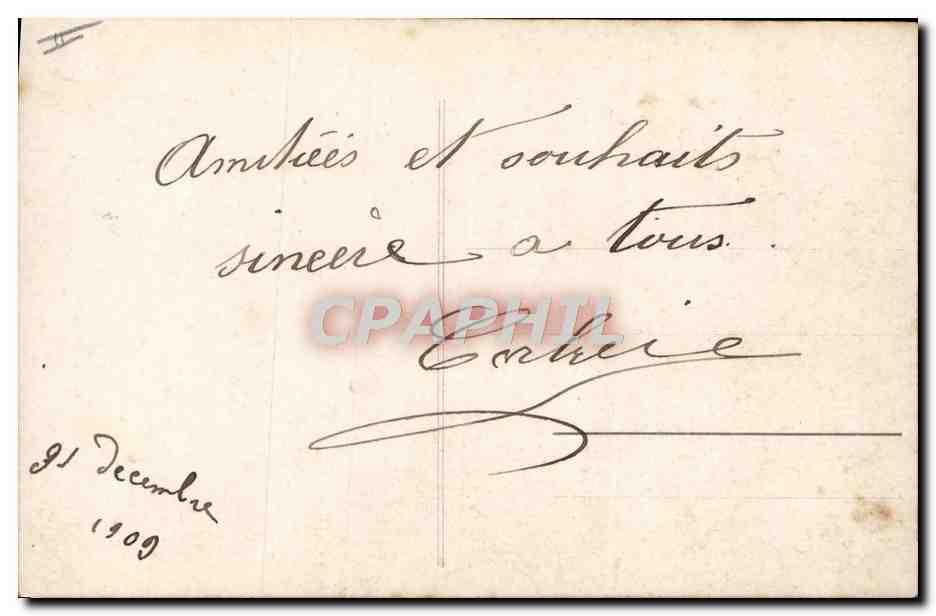 Amitiées et souhaits
sincère a tous.
CPAPHIL
31 decembre
1909